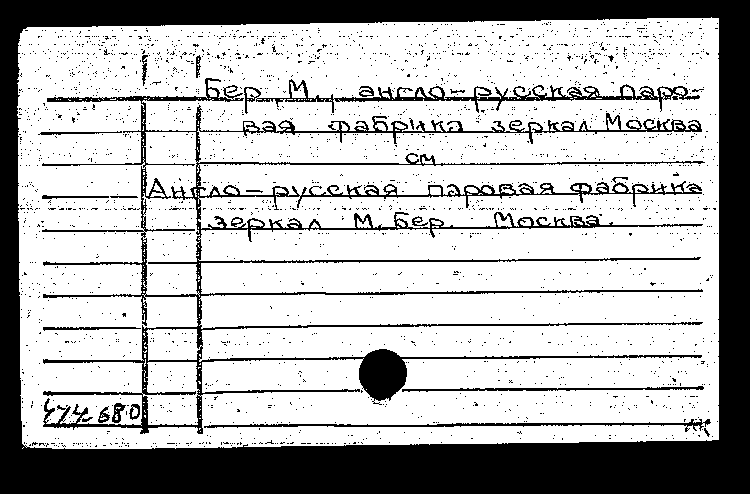 Бер М., англо-русская паро-
вая фабрика зеркал Москва
см
Англо-русская паровая фабрика
зеркал М. Бер. Москва.